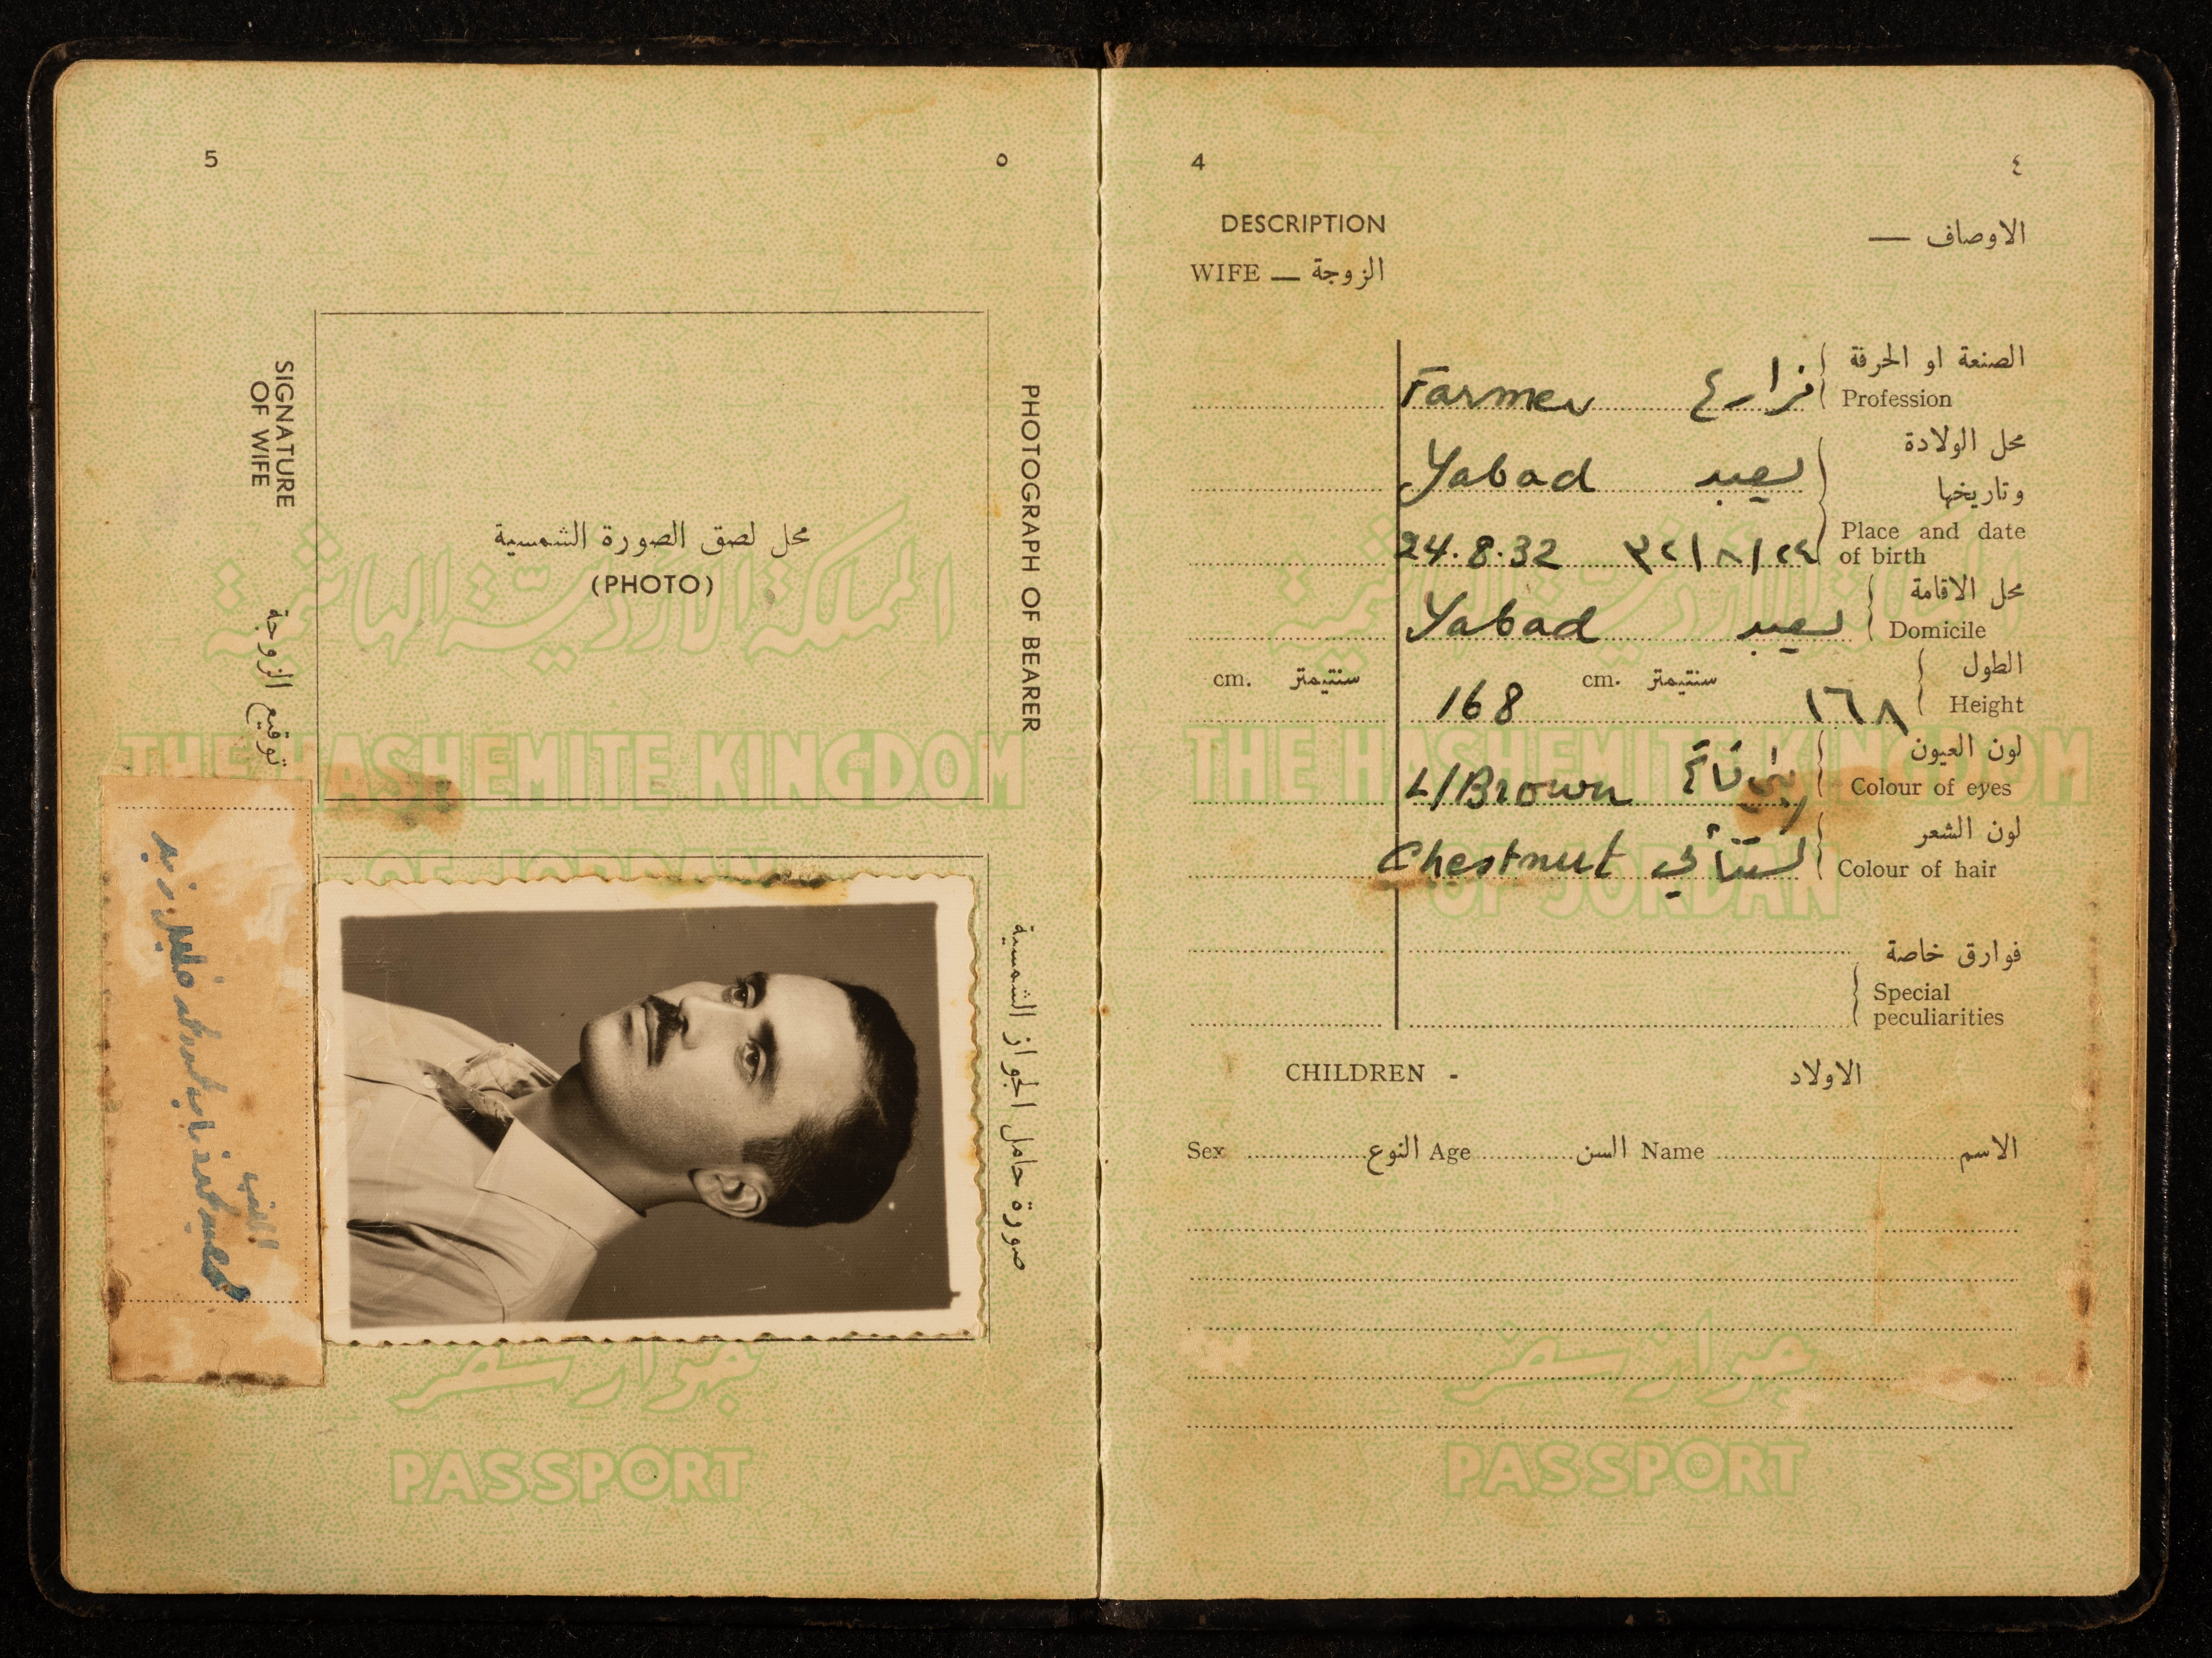 5 ٥
محل لصق الصورة الشمسية
(PHOTO)
PHOTOGRAPH OF BEARER
صورة حامل الجواز الشمسية
SIGNATURE
OF WIFE
توقيع الزوجة
المملكة الأردنية الهاشمية
THE HASHEMITE KINGDOM
OF JORDAN
جواز سفر
PASSPORT
4 ٤
DESCRIPTION الاوصاف —
WIFE — الزوجة
الصنعة او الحرفة
Farmer مزارع Profession
محل الولادة
Yabad يعبد
وتاريخها
Place and date
24.8.32 ٣٢/٨/٢٤ of birth
محل الاقامة
Yabad يعبد Domicile
cm. سنتيمتر cm. سنتيمتر الطول
168 ١٦٨ Height
لون العيون
L/Brown بني Colour of eyes
لون الشعر
Chestnut كستنائي Colour of hair
فوارق خاصة
Special
peculiarities
CHILDREN - الاولاد
Sex النوع Age السن Name الاسم
المملكة الأردنية الهاشمية
THE HASHEMITE KINGDOM
OF JORDAN
جواز سفر
PASSPORT